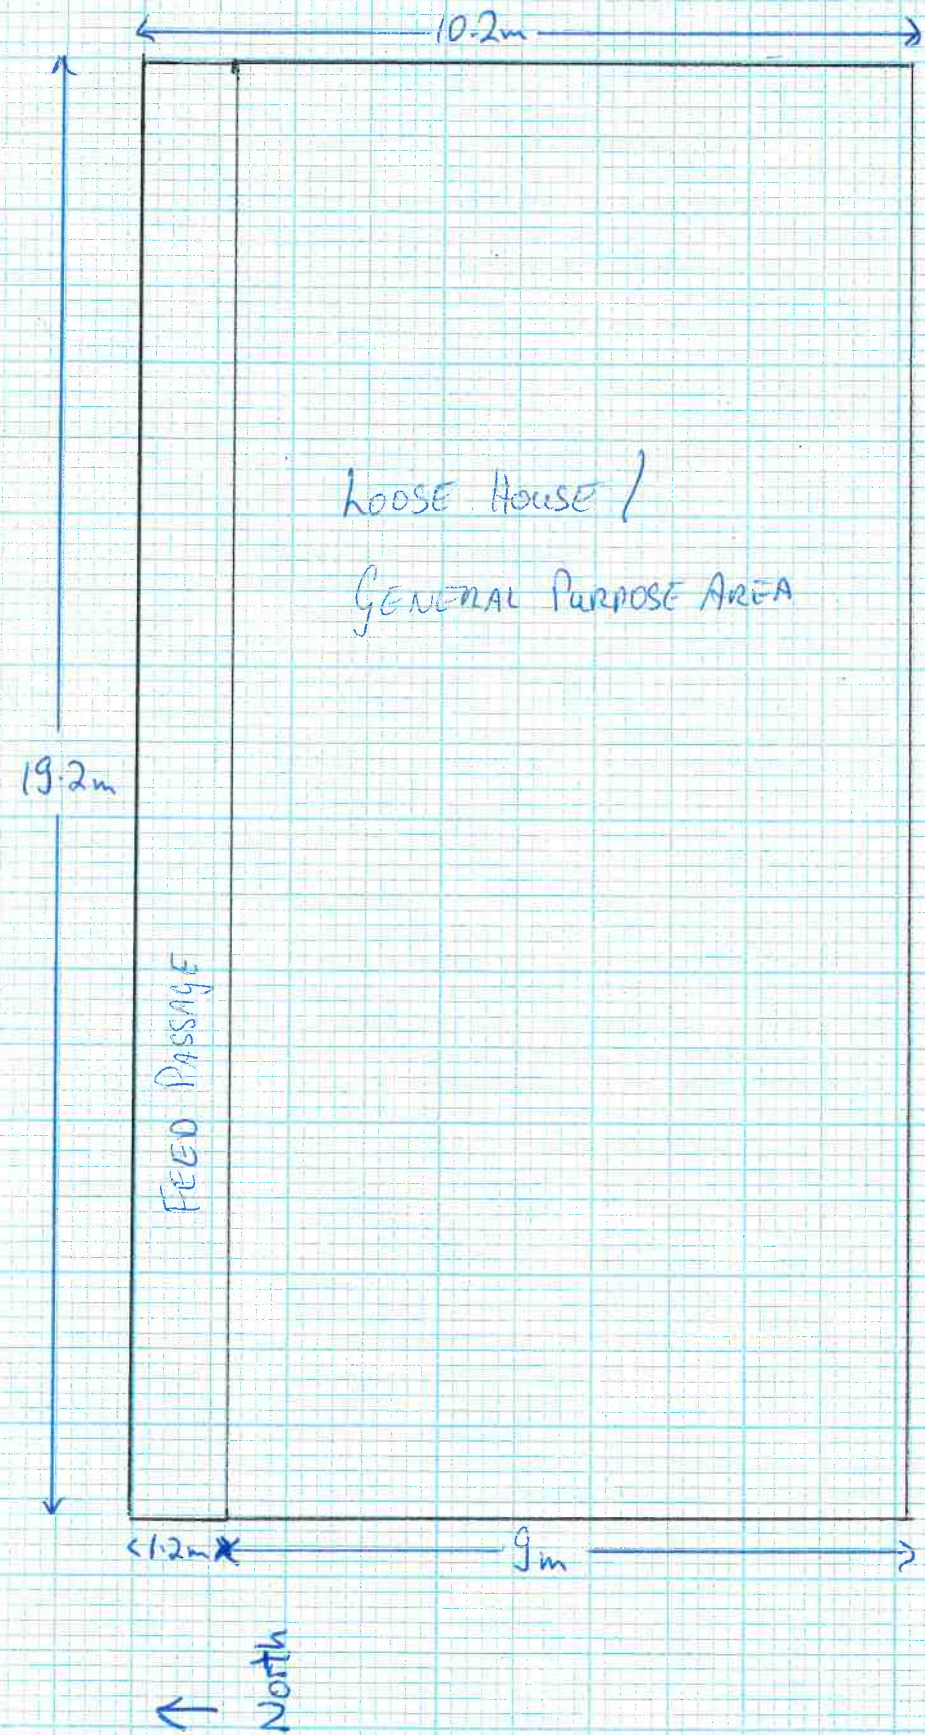 10.2m
LOOSE HOUSE /
GENERAL PURPOSE AREA
19.2m
FEED PASSAGE
1.2m
9m
North